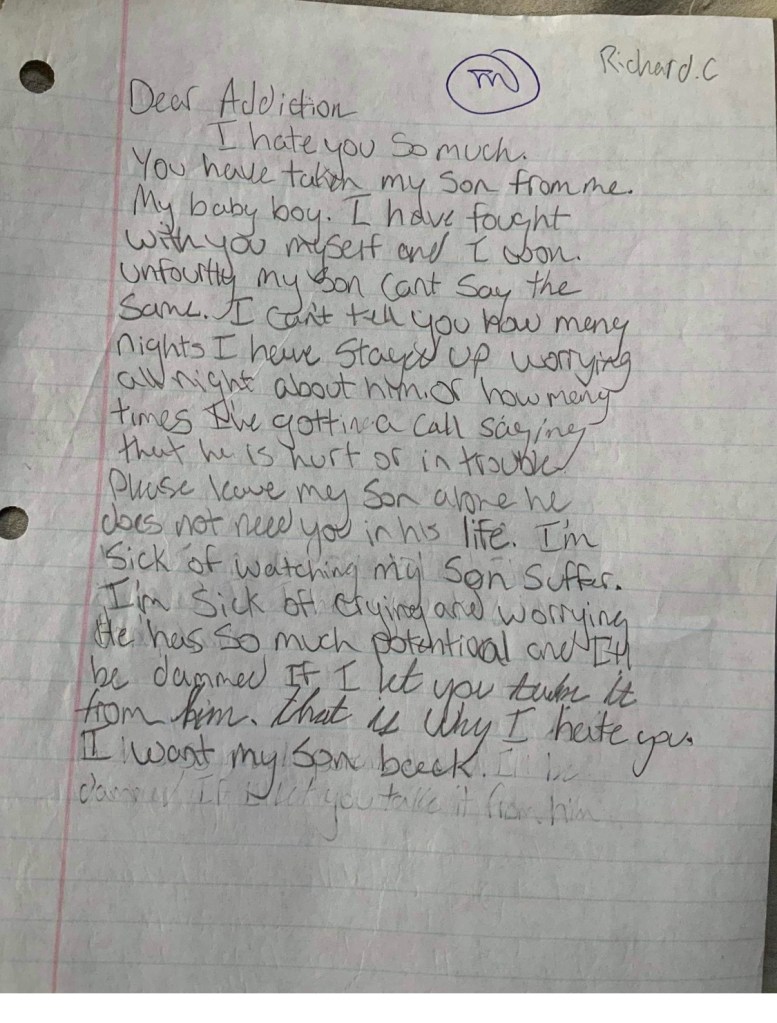 Richard.C
m
Dear Addiction
I hate you so much.
You have taken my son from me.
My baby boy. I have fought
with you myself and I won.
unfourtly my son cant say the
same. I can't tell you how meny
nights I have stay'd up worrying
all night about him. or how meny
times I've gottin a call saying
that he is hurt or in trouble
Please leave my son alone he
does not need you in his life. I'm
sick of watching my son suffer.
I'm sick of crying and worrying
He has so much potentional and I'll
be dammed If I let you take it
from him. that is why I hate you.
I want my son back.
If I let you take it from him